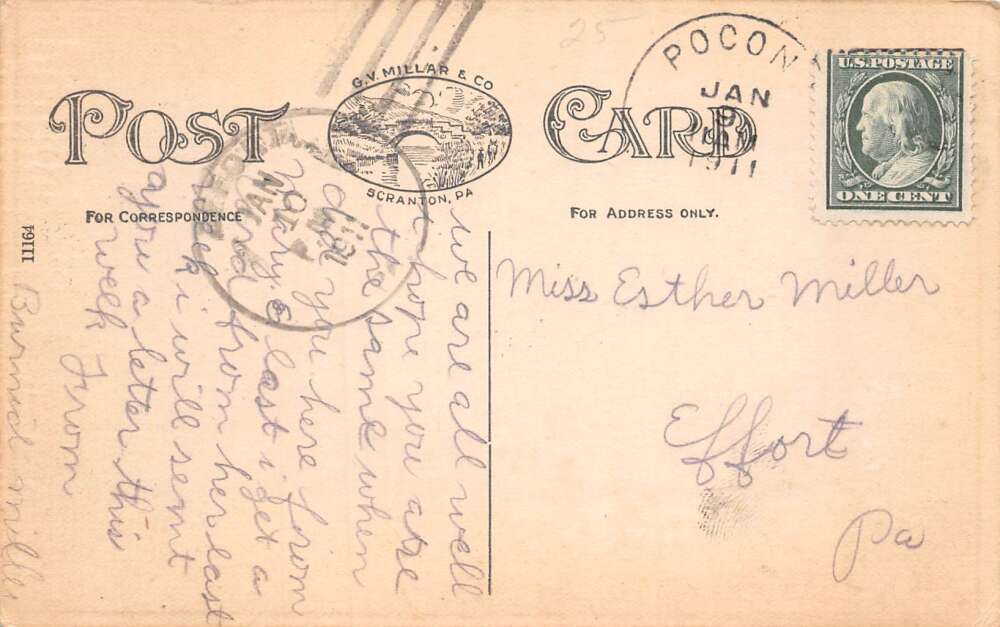 POST CARD
G. V. MILLAR & CO
SCRANTON, PA.
FOR CORRESPONDENCE
FOR ADDRESS ONLY.
11164
25
POCON
JAN
9
1911
U.S. POSTAGE
ONE CENT
JAN
10
1911
Miss Esther Miller
Effort
Pa
we are all well
hope you are
the same when
did you here from
Mary last i get a
card from her last
week i will sent
you a letter this
week
From
Miller